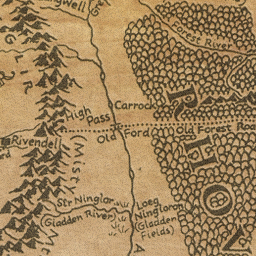 gwell
Forest River
High
Pass
Carrock
Old Ford
Old Forest Roa
Rivendell
(Mist
Str Ninglor
(Gladden River)
Loeg
Ningloron
(Gladden
Fields)
RHOV
Mt